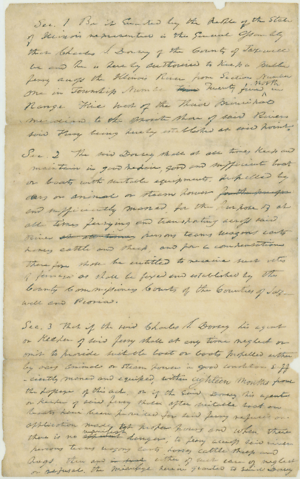 Sec. 1 Be it Enacted by the People of the State
of Illinois represented in the General Assembly
that Charles S. Dorsey of the County of Tazewell
be and he is hereby authorized to keep a public
ferry across the Illinois River from Section Number
One in Township Number twenty five North
Range West of the Third Principal
Meridian to the opposite shore of said River
said Ferry being hereby established at said point
Sec. 2 The said Dorsey shall at all times keep and
maintain in good repair good and sufficient boat
or boats with suitable equipment propelled by
oars or animal or steam power
and sufficiently manned for the purpose of at
all times ferrying and transporting across said
River persons teams wagons carts
horses cattle and sheep, and for a
therefor shall be entitled to receive such rates
of ferriage as shall be fixed and established by the
County Commissioners Courts of the Counties of Taz-
well and Peoria.
Sec. 3 That if the said Charles S. Dorsey his agent
or Keeper of said ferry shall at any time neglect or
omit to provide suitable boat or boats propelled either
by oars animal or steam power in good condition & suff-
iciently manned and equiped, within eighteen months from
the passage of this act, or if the said Dorsey his agents
or keeper of said ferry shall after suitable boat or
boats have been provided for said ferry neglect on
application made at proper times and when there
there is no danger, to ferry across said river
persons teams wagons carts horses cattle sheep and
hogs then in either of such case of neglect
or refusal, the privilege herein granted to said Dorsey